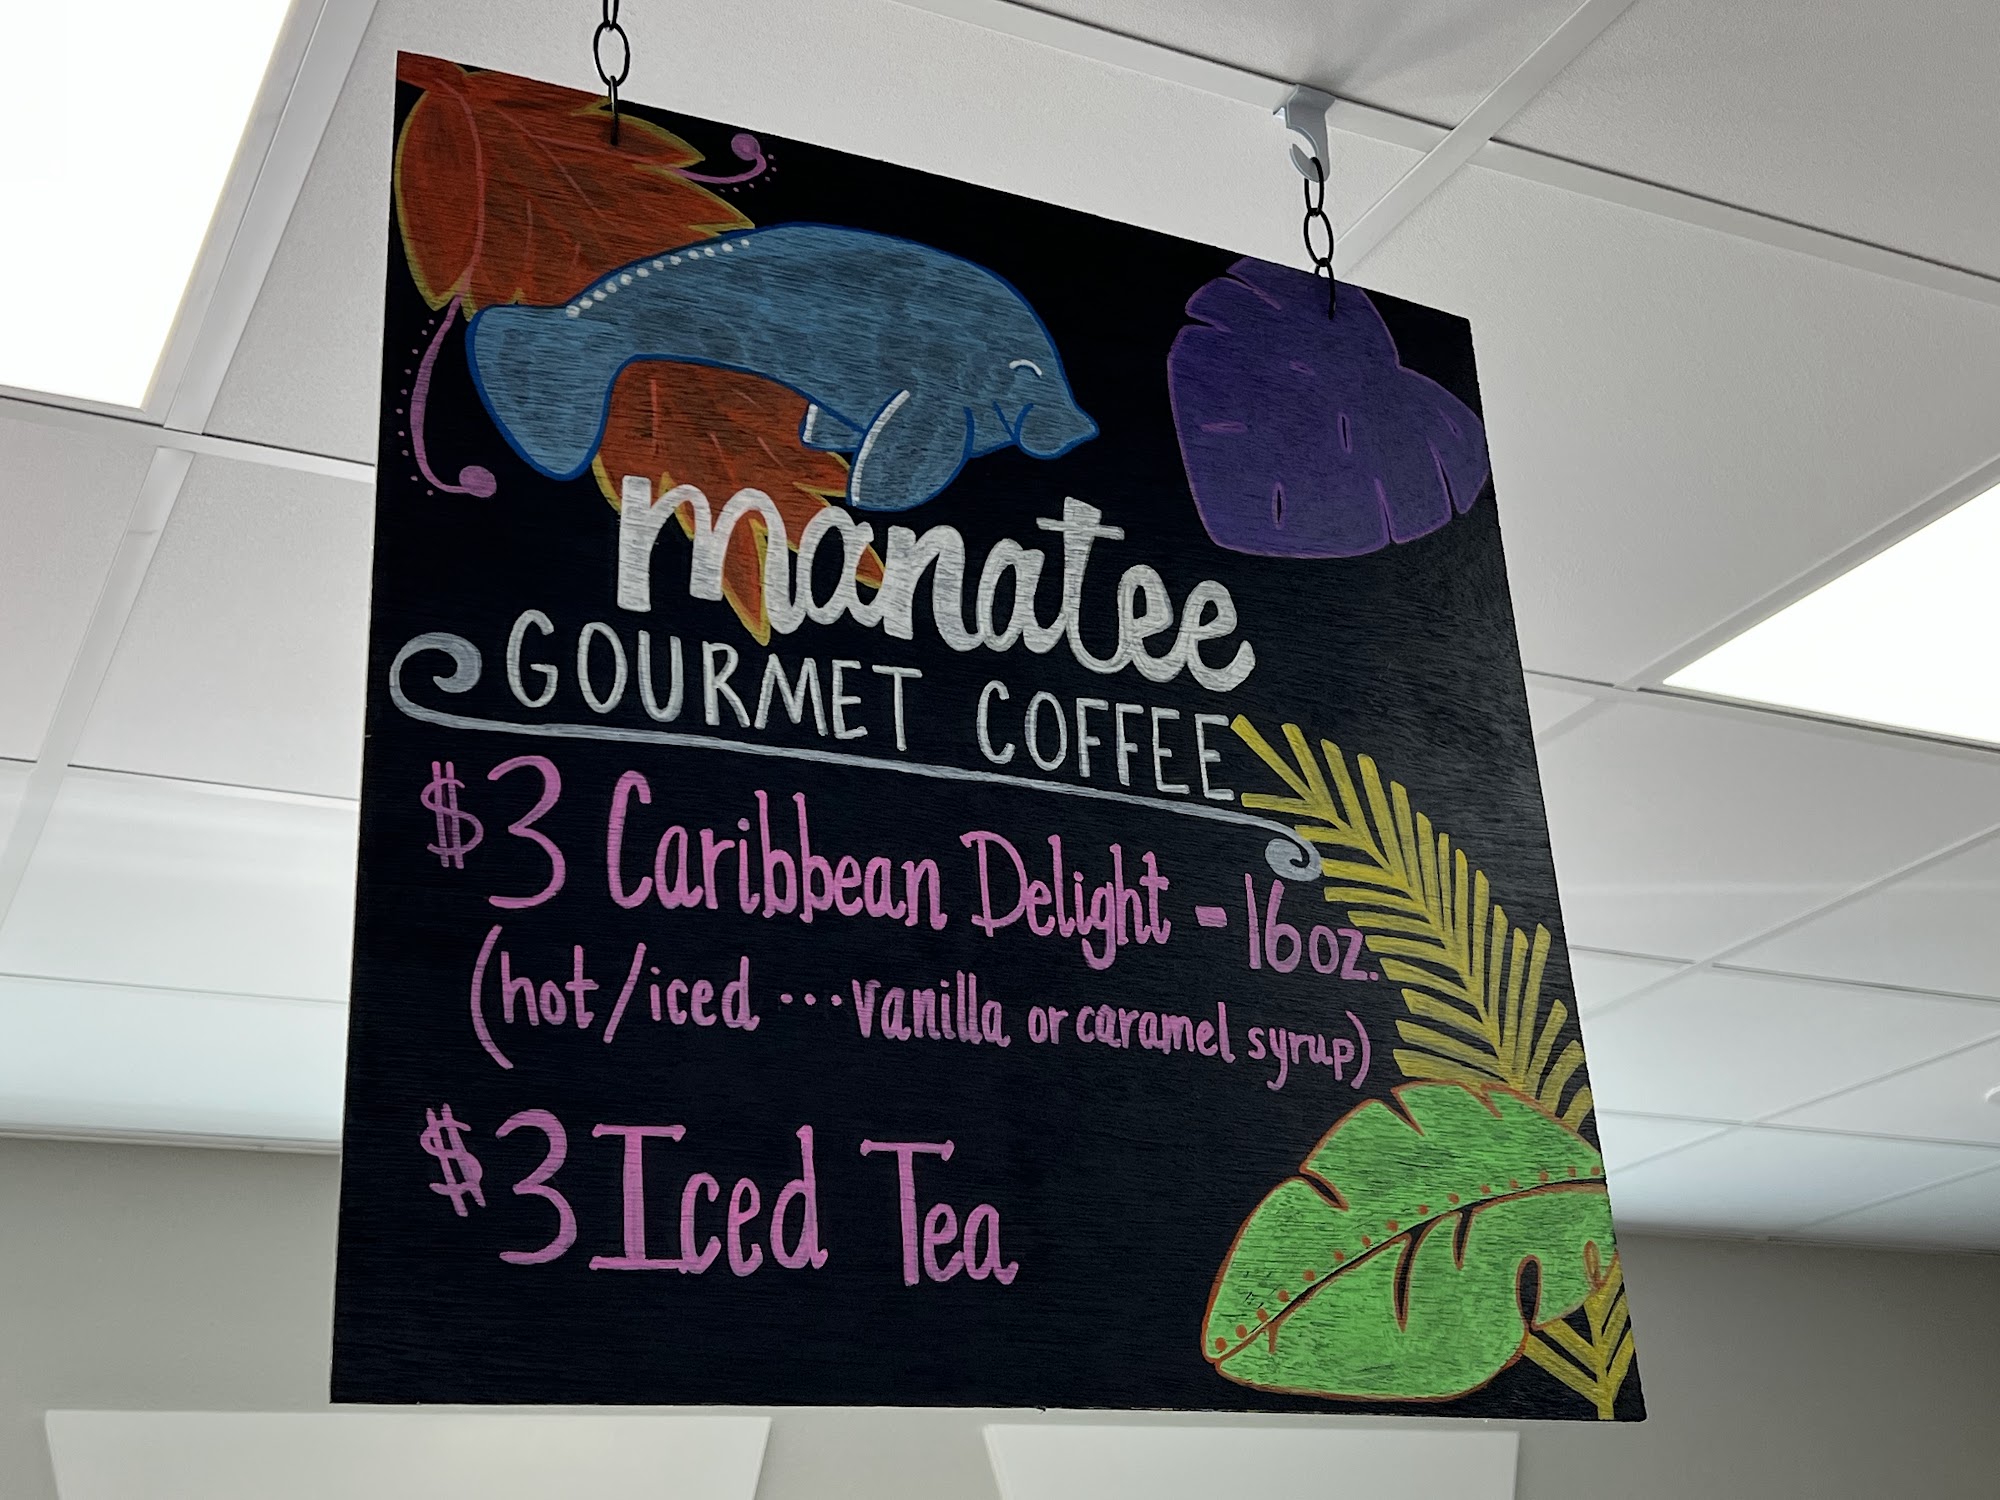 manatee
GOURMET COFFEE
$3 Caribbean Delight - 16oz.
(hot/iced ...vanilla or caramel syrup)
$3 Iced Tea